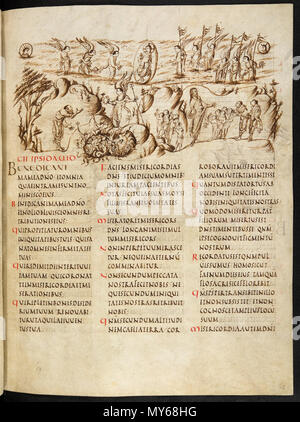 CII IPSI DAVID
BENEDIC ANI
MA MEA DNO ET OMNIA
QUAE INTRA ME SUNT NO
MINI SCO EIUS
BENEDIC ANIMA MEA DNO ET
NOLI OBLIUISCI OMNES RE
TRIBUTIONES EIUS
QUI PROPITIATUR OMNIBUS
INIQUITATIBUS TUIS QUI SA
NAT OMNES INFIRMITATES
TUAS
QUI REDIMIT DE INTERITU UI
TAM TUAM QUI CORONAT
TE IN MISERICORDIA ET MI
SERATIONIBUS
QUI REPLET IN BONIS DESIDE
RIUM TUUM RENOUABI
TUR UT AQUILAE IUUEN
TUS TUA
FACIENS MISERICORDIAS
DNS ET IUDICIUM OMNIBUS
INIURIAM PATIENTIBUS
NOTAS FECIT UIAS SUAS MOYSI
FILIIS ISRAHEL UOLUNTATES
SUAS
MISERATOR ET MISERICORS
DNS LONGANIMIS ET MUL
TUM MISERICORS
NON IN PERPETUUM IRASCE
TUR NEQUE IN AETERNUM
COMMINABITUR
NON SECUNDUM PECCATA
NOSTRA FECIT NOBIS NE
QUE SECUNDUM INIQUI
TATES NOSTRAS RETRIBU
IT NOBIS
QNM SECUNDUM ALTITU
DINEM CAELI A TERRA COR
ROBORAUIT MISERICORDI
AM SUAM SUPER TIMENTES EUM
QUANTUM DISTAT ORTUS AB
OCCIDENTE LONGE FECIT A
NOBIS INIQUITATES NRAS
QUOMODO MISERETUR PATER
FILIORUM MISERTUS EST
DNS TIMENTIBUS SE QNM
IPSE COGNOUIT FIGMENTUM
NOSTRUM
RECORDATUS EST QNM PUL
UIS SUMUS HOMO SICUT
FAENUM DIES EIUS TAMQUAM
FLOS AGRI SIC EFFLOREBIT
QNM SPS PERTRANSIBIT IN ILLO
SUUM
MISERICORDIA AUTEM DNI
alamy
Image ID: MY68HG
www.alamy.com